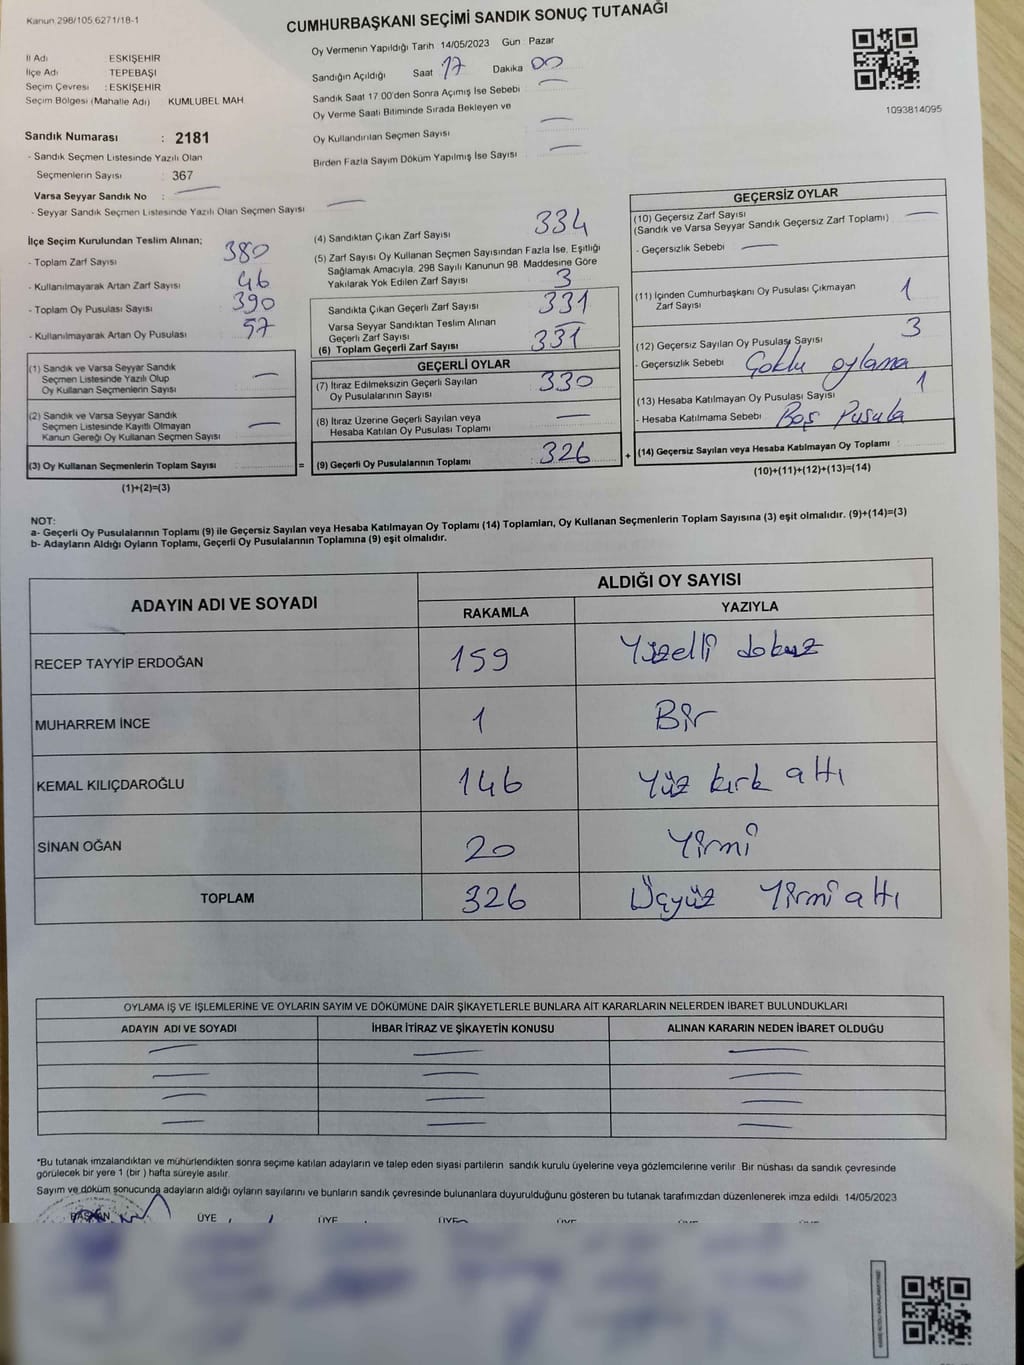 Kanun 298/105.6271/18-1
CUMHURBAŞKANI SEÇİMİ SANDIK SONUÇ TUTANAĞI
İl Adı ESKİŞEHİR
İlçe Adı TEPEBAŞI
Seçim Çevresi : ESKİŞEHİR
Seçim Bölgesi (Mahalle Adı) KUMLUBEL MAH
Sandık Numarası : 2181
- Sandık Seçmen Listesinde Yazılı Olan
Seçmenlerin Sayısı : 367
Varsa Seyyar Sandık No : —
- Seyyar Sandık Seçmen Listesinde Yazılı Olan Seçmen Sayısı —
Oy Vermenin Yapıldığı Tarih 14/05/2023 Gün Pazar
Sandığın Açıldığı Saat 17 Dakika 00
Sandık Saat 17.00'den Sonra Açımış İse Sebebi —
Oy Verme Saati Bitiminde Sırada Bekleyen ve
Oy Kullandırılan Seçmen Sayısı —
Birden Fazla Sayım Döküm Yapılmış İse Sayısı —
1093814095
İlçe Seçim Kurulundan Teslim Alınan;
- Toplam Zarf Sayısı 380
- Kullanılmayarak Artan Zarf Sayısı 46
- Toplom Oy Pusulası Sayısı 390
- Kullanılmayarak Artan Oy Pusulası 57
(1) Sandık ve Varsa Seyyar Sandık
Seçmen Listesinde Yazılı Olup
Oy Kullanan Seçmenlerin Sayısı —
(2) Sandık ve Varsa Seyyar Sandık
Seçmen Listesinde Kayıtlı Olmayan
Kanun Gereği Oy Kullanan Seçmen Sayısı —
(3) Oy Kullanan Seçmenlerin Toplam Sayısı =
(1)+(2)=(3)
(4) Sandıktan Çıkan Zarf Sayısı 334
(5) Zarf Sayısı Oy Kullanan Seçmen Sayısından Fazla İse, Eşitliği
Sağlamak Amacıyla, 298 Sayılı Kanunun 98. Maddesine Göre
Yakılarak Yok Edilen Zarf Sayısı 3
Sandıkta Çıkan Geçerli Zarf Sayısı 331
Varsa Seyyar Sandıktan Teslim Alınan
Geçerli Zarf Sayısı —
(6) Toplam Geçerli Zarf Sayısı 331
GEÇERLİ OYLAR
(7) İtiraz Edilmeksizin Geçerli Sayılan
Oy Pusulalarının Sayısı 330
(8) İtiraz Üzerine Geçerli Sayılan veya
Hesaba Katılan Oy Pusulası Toplamı —
(9) Geçerli Oy Pusulalarının Toplamı 326 +
GEÇERSİZ OYLAR
(10) Geçersiz Zarf Sayısı
(Sandık ve Varsa Seyyar Sandık Geçersiz Zarf Toplamı) —
- Geçersizlik Sebebi —
(11) İçinden Cumhurbaşkanı Oy Pusulası Çıkmayan
Zarf Sayısı 1
(12) Geçersiz Sayılan Oy Pusulası Sayısı 3
- Geçersizlik Sebebi Çoklu oylama
(13) Hesaba Katılmayan Oy Pusulası Sayısı 1
- Hesaba Katılmama Sebebi Boş Pusula
(14) Geçersiz Sayılan veya Hesaba Katılmayan Oy Toplamı :
(10)+(11)+(12)+(13)=(14)
NOT:
a- Geçerli Oy Pusulalarının Toplamı (9) ile Geçersiz Sayılan veya Hesaba Katılmayan Oy Toplamı (14) Toplamları, Oy Kullanan Seçmenlerin Toplam Sayısına (3) eşit olmalıdır. (9)+(14)=(3)
b- Adayların Aldığı Oyların Toplamı, Geçerli Oy Pusulalarının Toplamına (9) eşit olmalıdır.
ADAYIN ADI VE SOYADI ALDIĞI OY SAYISI
RAKAMLA YAZIYLA
RECEP TAYYİP ERDOĞAN 159 Yüzelli dokuz
MUHARREM İNCE 1 Bir
KEMAL KILIÇDAROĞLU 146 Yüz kırk altı
SİNAN OĞAN 20 Yirmi
TOPLAM 326 Üçyüz Yirmi altı
OYLAMA İŞ VE İŞLEMLERİNE VE OYLARIN SAYIM VE DÖKÜMÜNE DAİR ŞİKAYETLERLE BUNLARA AİT KARARLARIN NELERDEN İBARET BULUNDUKLARI
ADAYIN ADI VE SOYADI İHBAR İTİRAZ VE ŞİKAYETİN KONUSU ALINAN KARARIN NEDEN İBARET OLDUĞU
— — —
— — —
— — —
— — —
*Bu tutanak imzalandıktan ve mühürlendikten sonra seçime katılan adayların ve talep eden siyasi partilerin sandık kurulu üyelerine veya gözlemcilerine verilir. Bir nüshası da sandık çevresinde
görülecek bir yere 1 (bir ) hafta süreyle asılır.
Sayım ve döküm sonucunda adayların aldığı oyların sayılarını ve bunların sandık çevresinde bulunanlara duyurulduğunu gösteren bu tutanak tarafımızdan düzenlenerek imza edildi. 14/05/2023
BAŞKAN ÜYE ÜYE ÜYE ÜYE